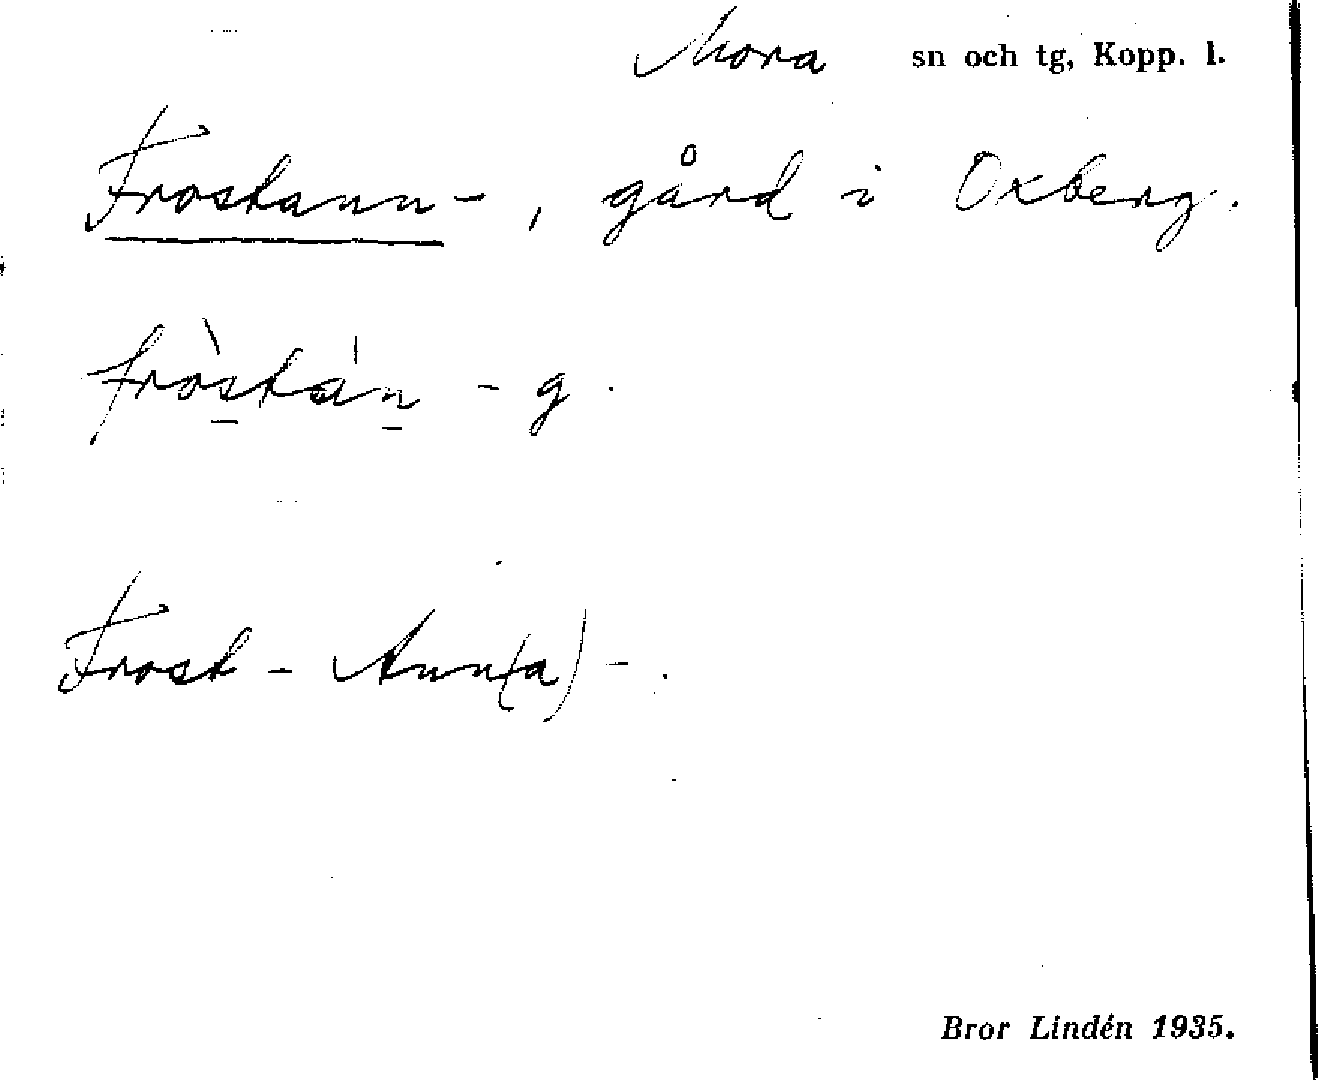 Mora sn och tg, Kopp. l.
Frostann-, gård i Oxberg.
fròstán - g.
Frost - Ann(a) -.
Bror Lindén 1935.